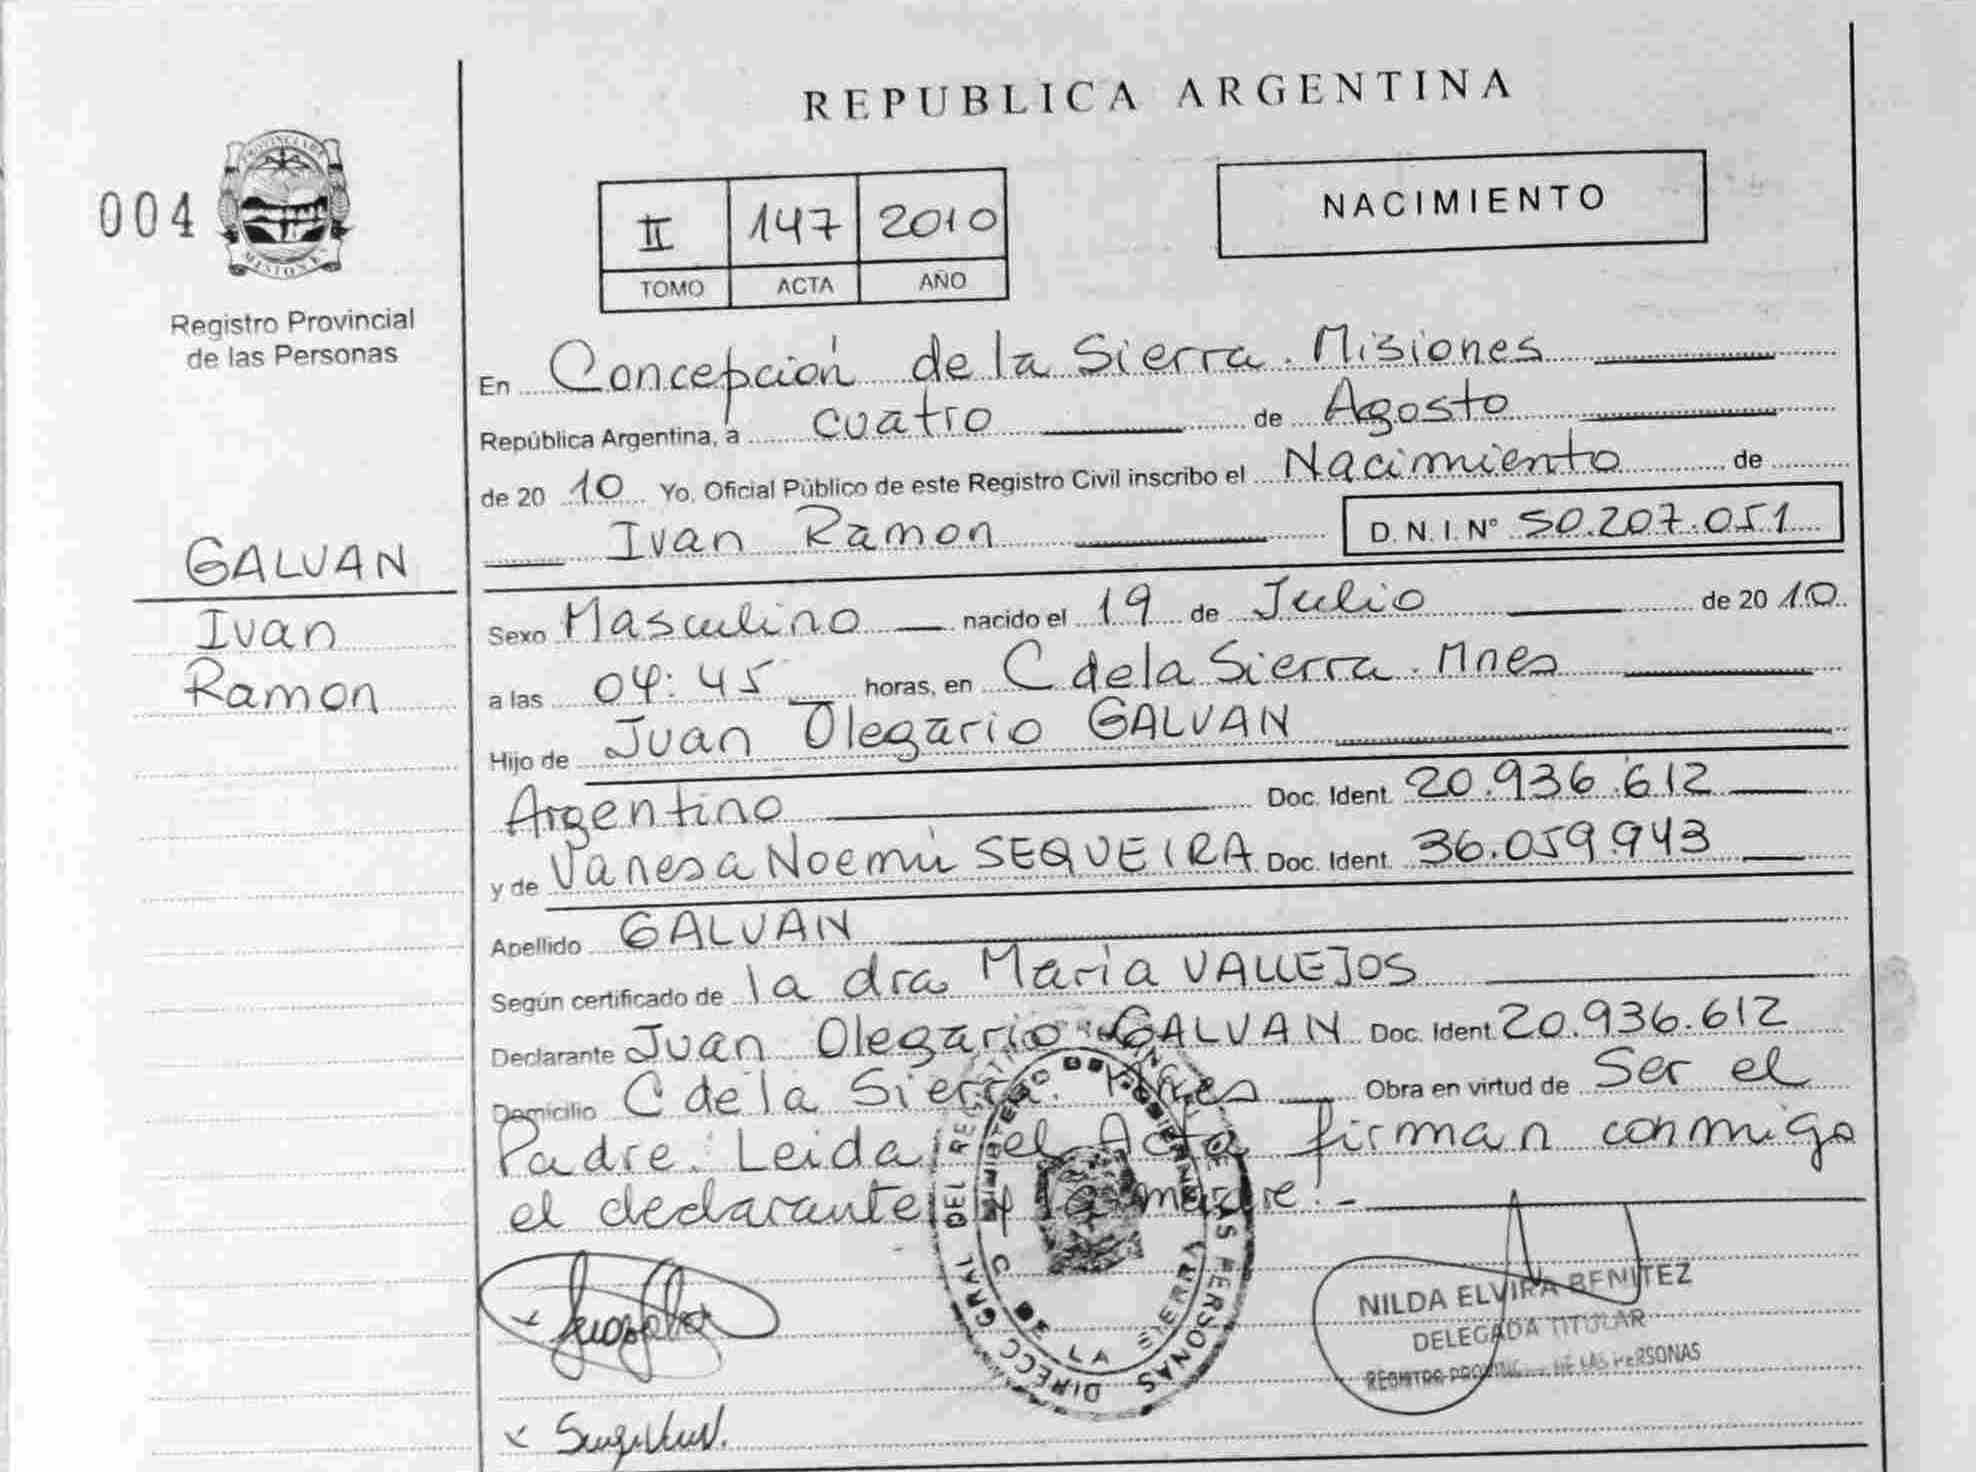 REPUBLICA ARGENTINA
004
PROVINCIA DE
MISIONES
Registro Provincial
de las Personas
II 147 2010
TOMO ACTA AÑO
NACIMIENTO
En Concepción de la Sierra. Misiones
República Argentina, a cuatro de Agosto
de 20 10 Yo, Oficial Público de este Registro Civil inscribo el Nacimiento de
Ivan Ramon D.N.I. Nº 50.207.051
GALVAN
Ivan
Ramon
Sexo Masculino nacido el 19 de Julio de 20 10
a las 04:45 horas, en C de la Sierra. Mnes
Hijo de Juan Olegario GALVAN
Argentino Doc. Ident. 20.936.612
y de Vanesa Noemí SEQUEIRA Doc. Ident. 36.059.943
Apellido GALVAN
Según certificado de la dra Maria VALLEJOS
Declarante Juan Olegario GALVAN Doc. Ident. 20.936.612
Domicilio C de la Sierra. Mnes Obra en virtud de Ser el
Padre. Leida el Acta firman conmigo
el declarante y la madre.-
DIRECC GRAL DEL REGIST DE LAS PERSONAS
MINISTERIO DE GOBIERNO
C DE LA SIERRA
NILDA ELVIRA BENITEZ
DELEGADA TITULAR
REGISTRO PROVINCIAL DE LAS PERSONAS